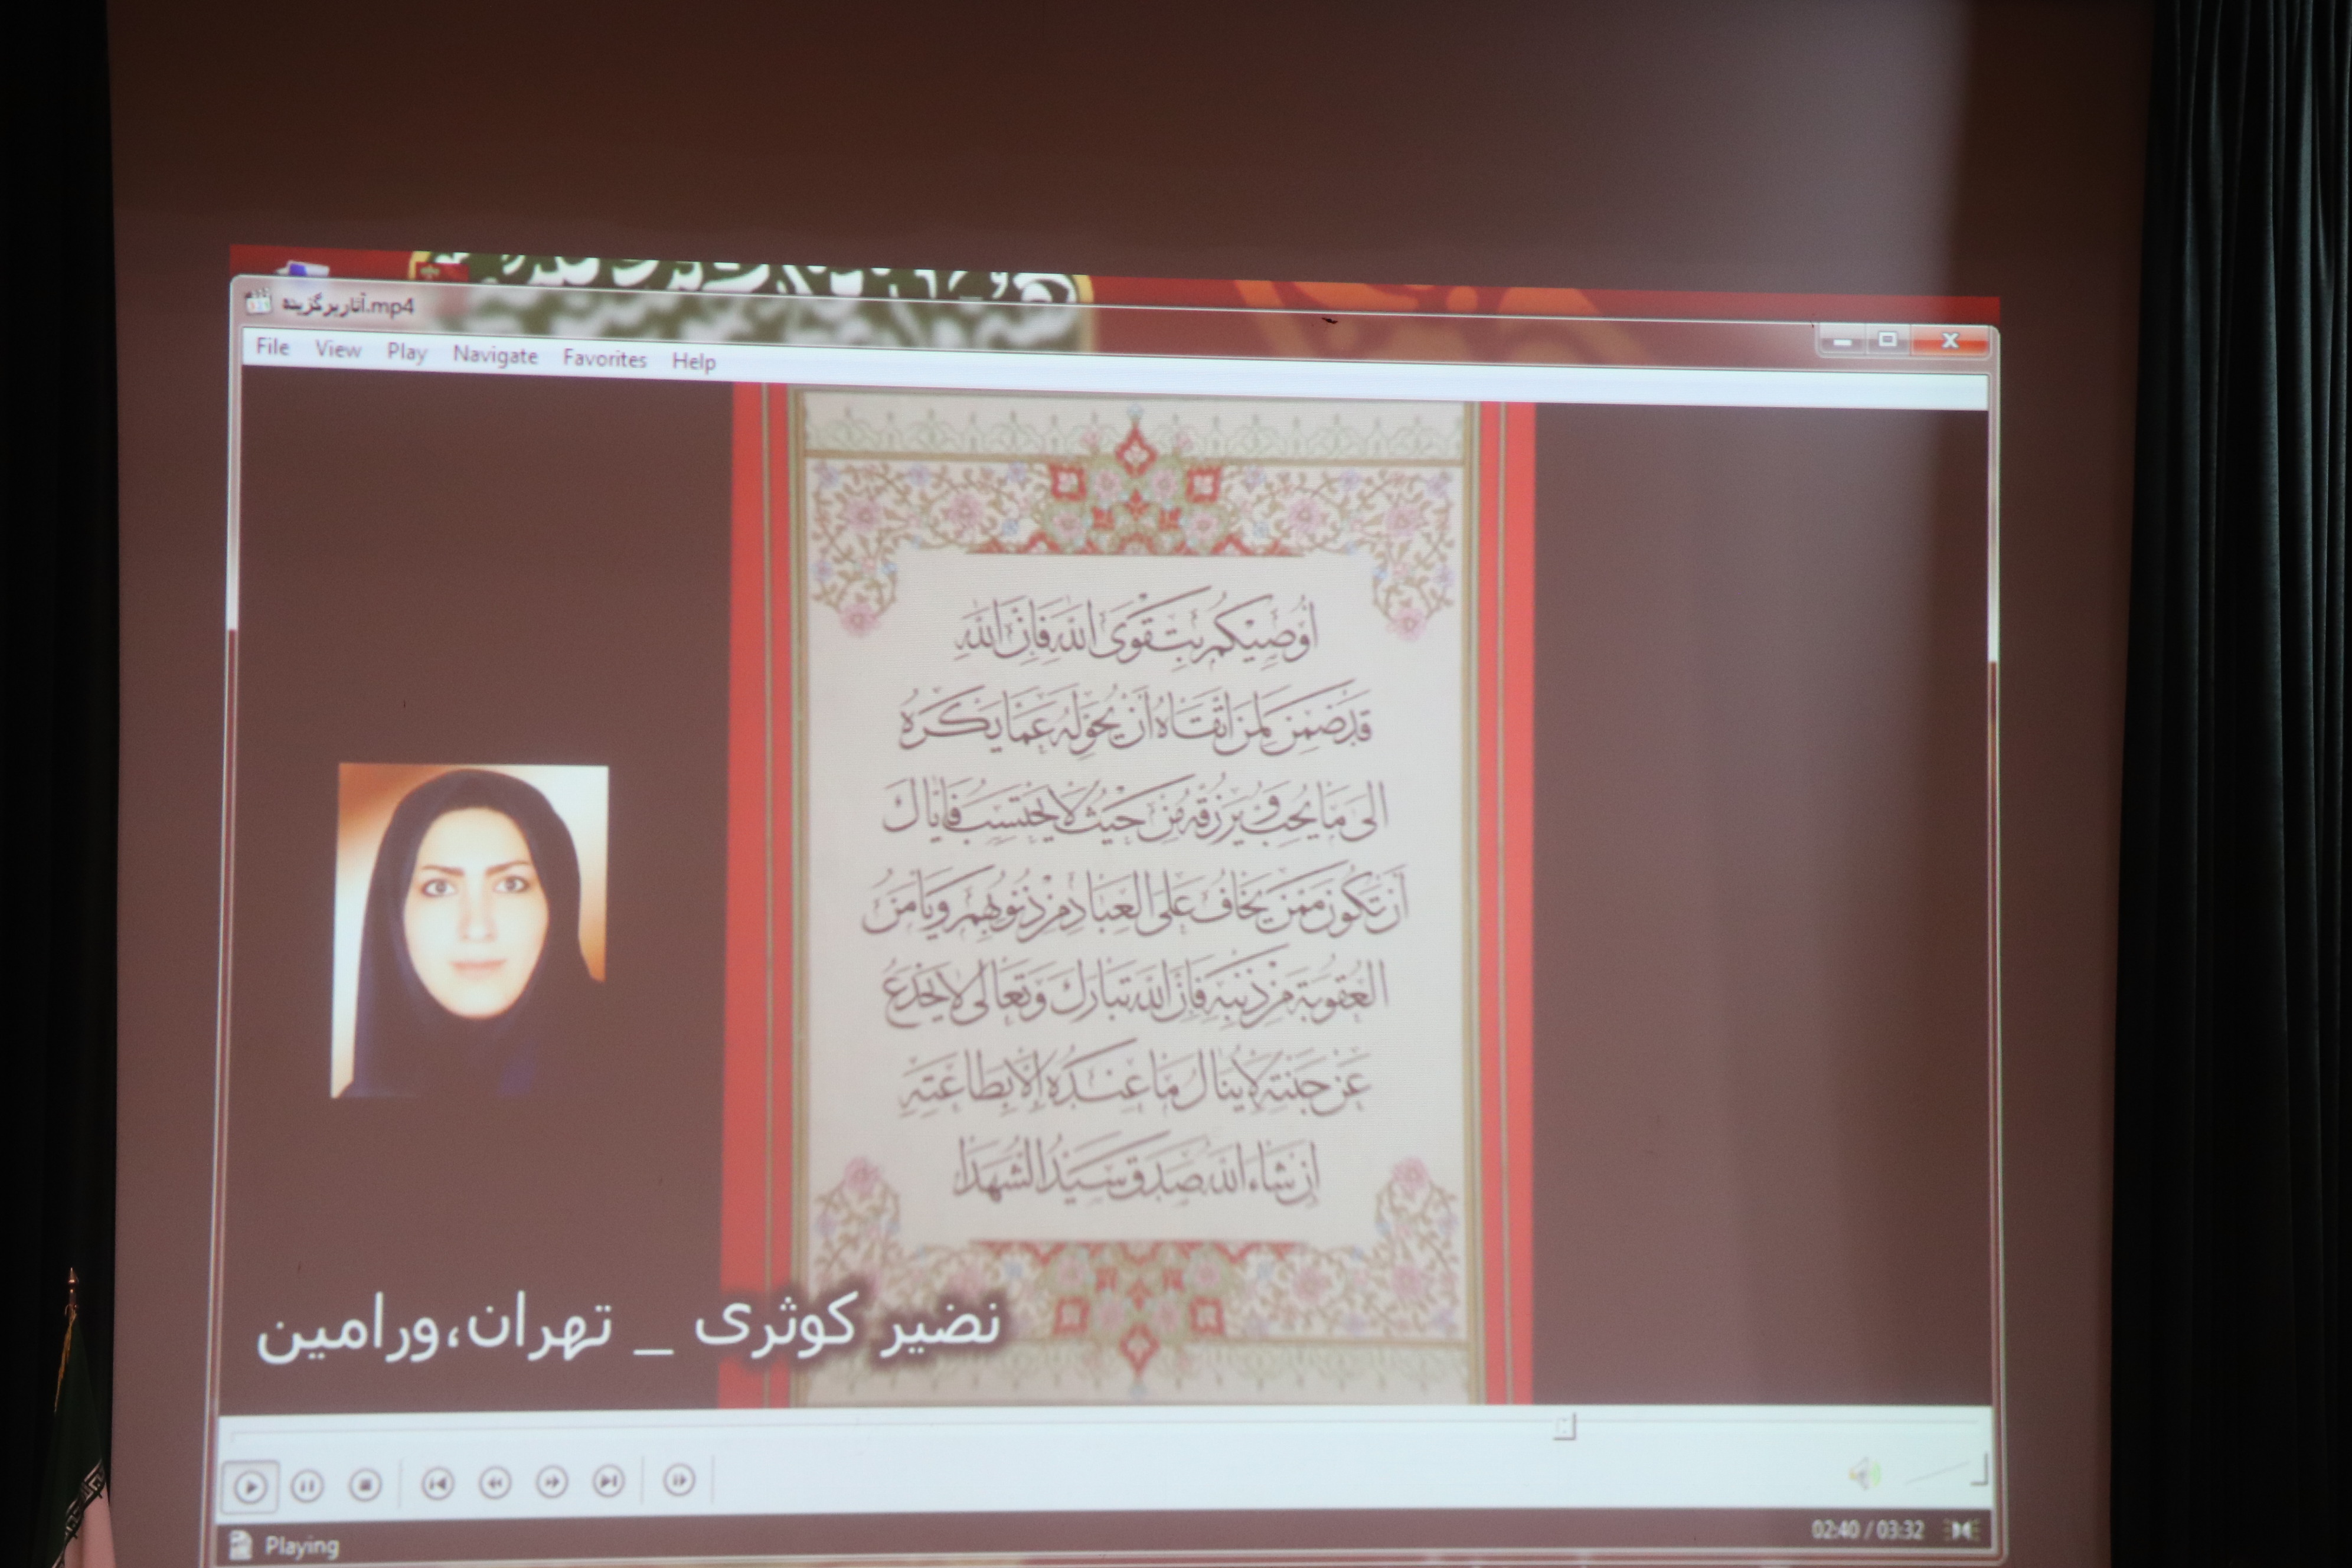 آثاربرگزیده.mp4
File View Play Navigate Favorites Help
اُوصیْکُم بِتَقْوَی اللهِ فَاِنَّ اللهَ
قَدْ ضَمِنَ لِمَنِ اتَّقَاهُ أَنْ یُحَوِّلَهُ عَمَّا یَکْرَهُ
اِلی مَا یُحِبُّ وَیَرْزُقَهُ مِنْ حَیْثُ لَایَحْتَسِبُ فَاِیَّاكَ
أَنْ تَکُونَ مِمَّنْ یَخَافُ عَلَی العِبَادِ مِنْ ذُنُوبِهِم وَیَأمَنُ
العُقُوبَةَ مِنْ ذَنْبِهِ فَاِنَّ اللهَ تَبَارَكَ وَتَعَالَی لَایُخْدَعُ
عَنْ جَنَّتِهِ لَایُنَالُ مَا عِنْدَهُ اِلَّا بِطَاعَتِهِ
اِنْ شَاءَ الله صَدَقَ سَیِّدُ الشُّهَدَا
نضیر کوثری _ تهران،ورامین
Playing
02:40 / 03:32